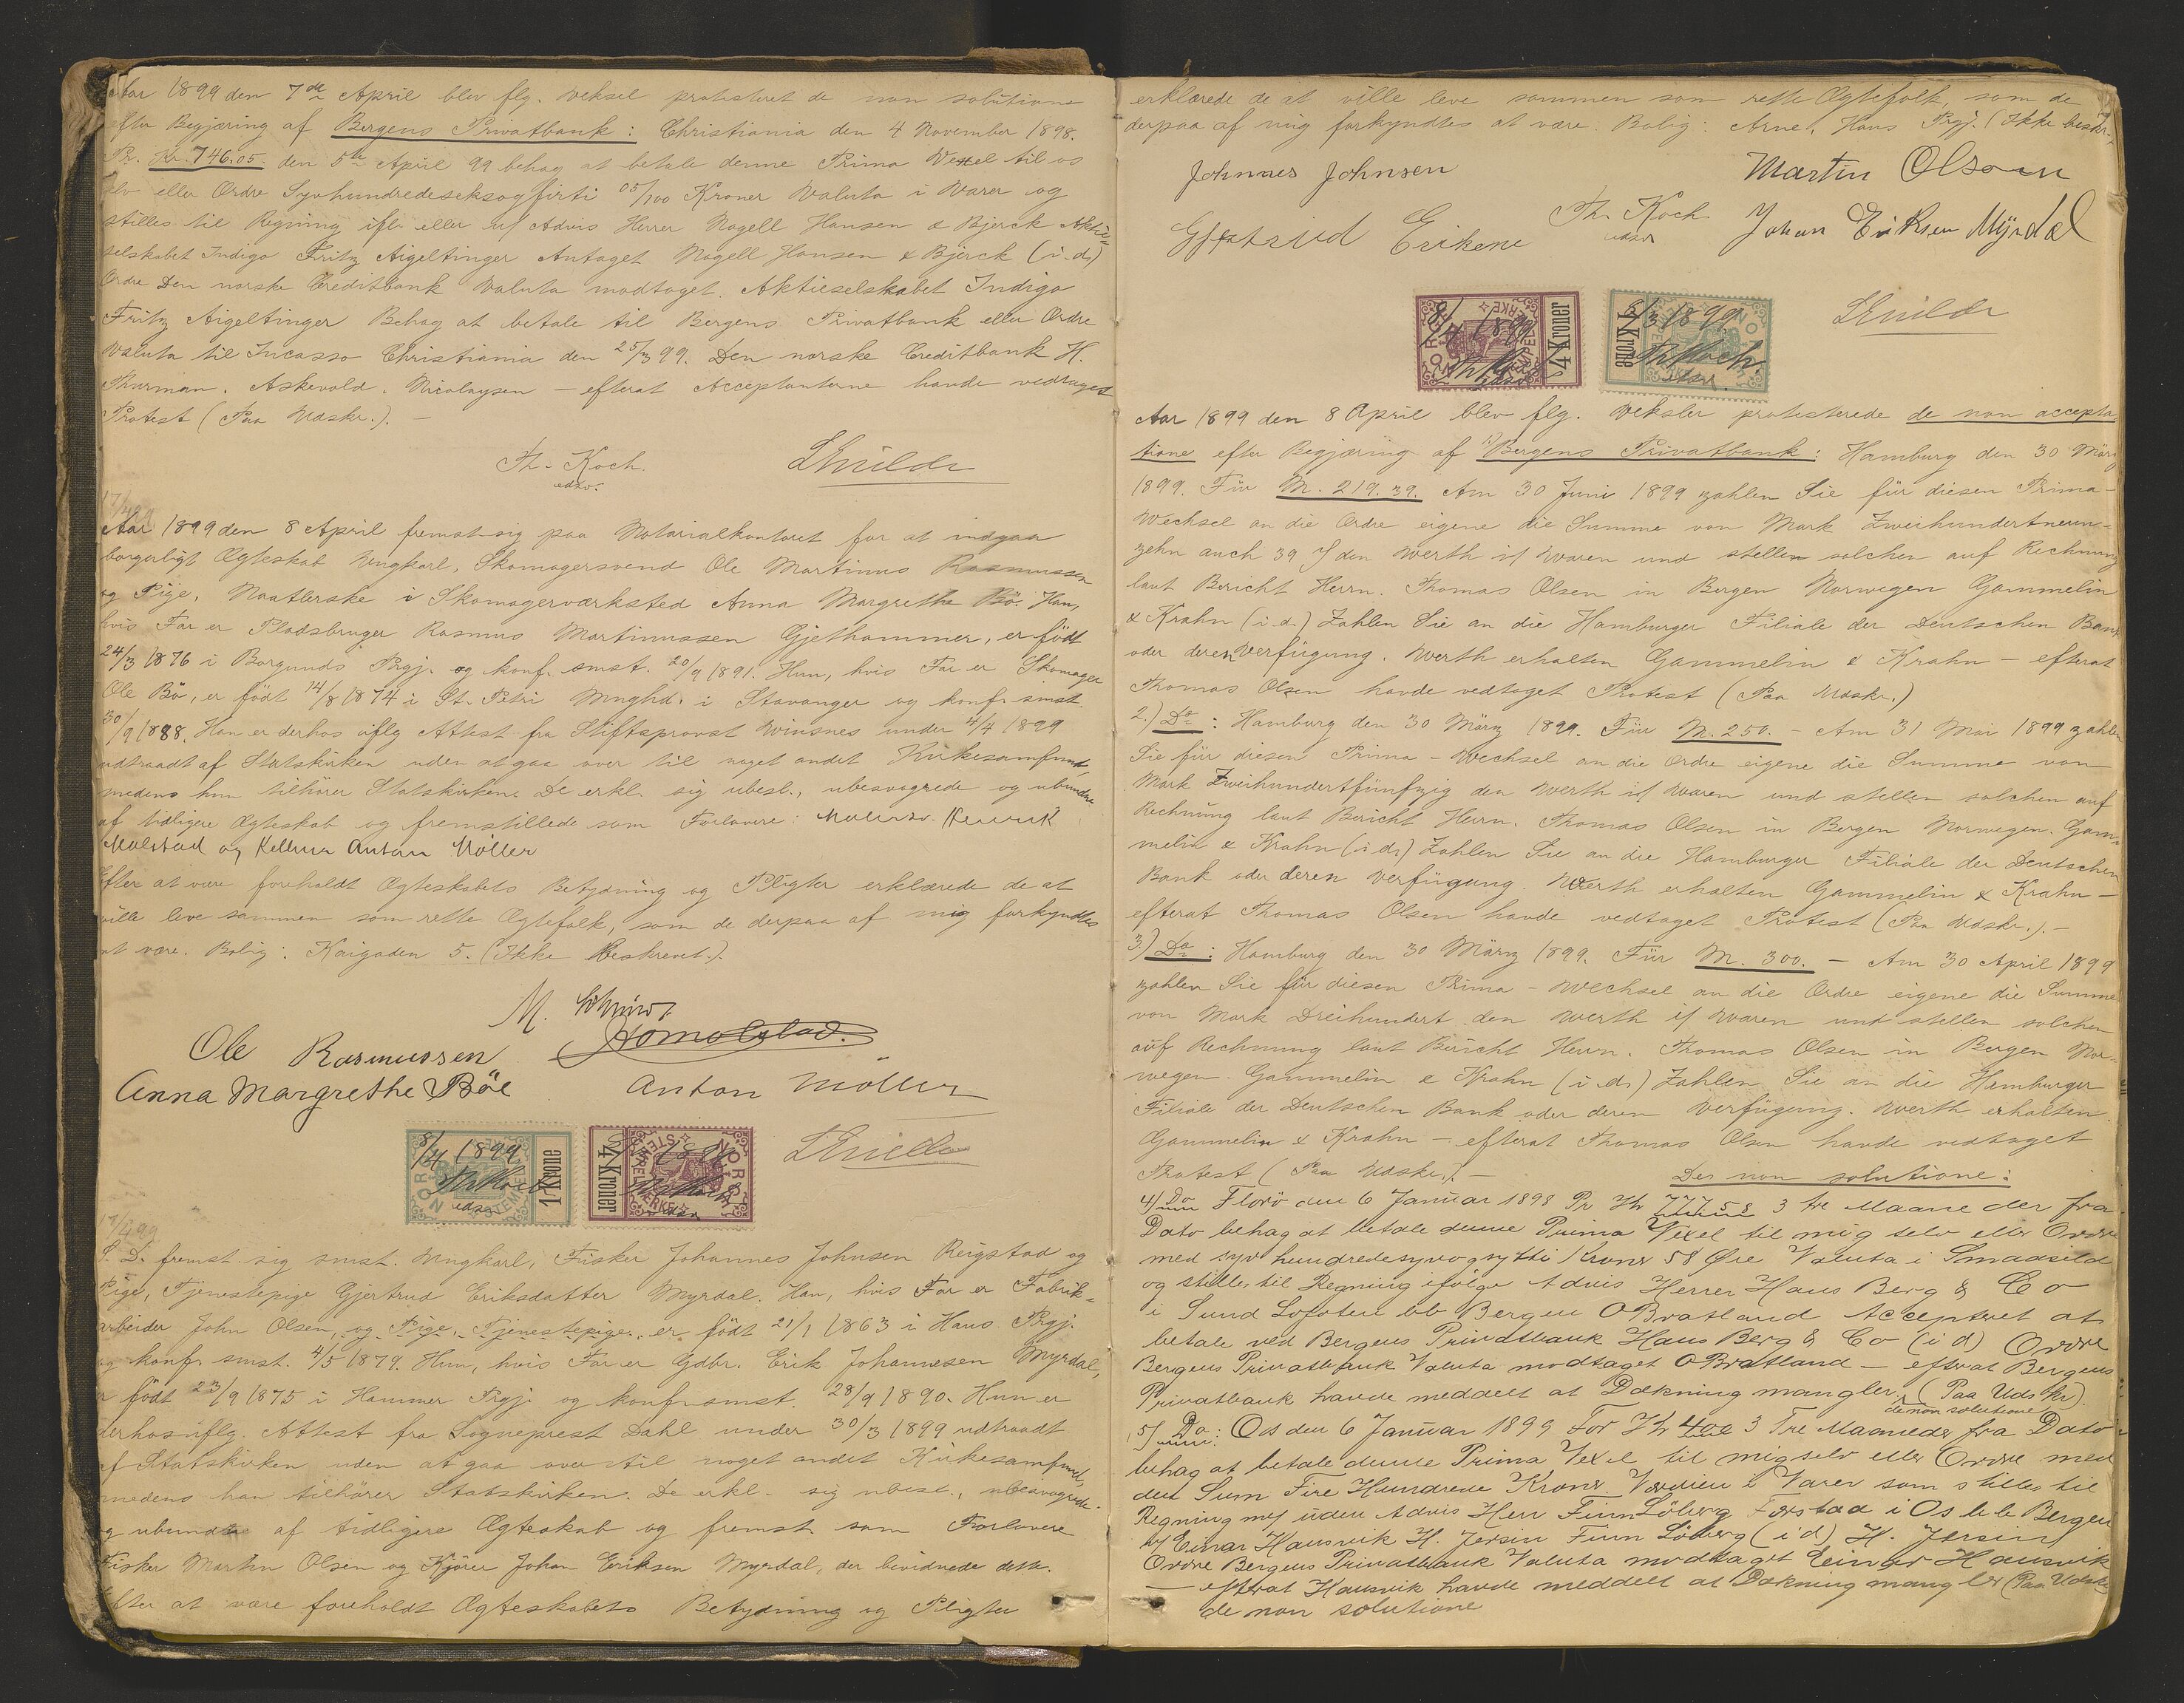 Aar 1899 den 7de April blev flg. Veksel protesteret de non solutione
efter Begjæring af Bergens Privatbank: Christiania den 4 November 1898.
Pr. Kr. 746.05. den 5te April 99 behag at betale denne Prima Vexel til os
selv eller Ordre Syvhundredeseksogfirti 05/100 Kroner Valuta i Varer og
stilles til Regning ifl. eller u/ Advis Herrer Nagell Hansen & Bjerck Aktie-
selskabet Indigo Fritz Aigeltinger Antaget Nagell Hansen & Bjerck (i.d.)
Ordre Den norske Creditbank Valuta modtaget. Aktieselskabet Indigo
Fritz Aigeltinger Behag at betale til Bergens Privatbank eller Ordre
Valuta til Incasso Christiania den 25/3 99. Den norske Creditbank H.
Thurman. Askevold. Nicolaysen – efterat Acceptanterne havde vedtaget
Protest (Paa Udskr.). –
Th. Koch
edsv.
17/4 99
Aar 1899 den 8 April fremst. sig paa Notarialkontoret for at indgaa
borgerligt Ægteskab Ungkarl, Skomagersvend Ole Martinus Rasmussen
og Pige, Naatlerske i Skomagerværksted Anna Margrethe Bö. Han,
hvis Far er Pladsbruger Rasmus Martinussen Gjethammer, er født
24/3 1876 i Borgunds Prgj. og konf. smst. 20/9 1891. Hun, hvis Far er Skomager
Ole Bö, er født 14/8 1874 i St. Petri Mnghd. i Stavanger og konf. smst.
30/9 1888. Han er derhos iflg Attest fra Stiftsprovst Winsnes under 4/4 1899
udtraadt af Statskirken uden at gaa over til noget andet Kirkesamfund,
medens hun tilhører Statskirken. De erkl. sig ubesl., ubesvogrede og ubundne
af tidligere Ægteskab og fremstillede som Forlovere:
Malstad og Kellner Anton Möller
Efter at være foreholdt Ægteskabets Betydning og Pligter erklærede de at
ville leve sammen som rette Ægtefolk, som de derpaa af mig forkyndtes
at være. Bolig: Kaigaden 5. (Ikke beskrevet.).
M.
Ole Rasmussen
Anna Margrethe Böe
Anton Möller
8/4 1899
edsv.
1 Krone
NORGE
STEMPELMERKE
4 Kroner
17/4 99
S. D. fremst. sig smst. Ungkarl, Fisker Johannes Johnsen Reigstad og
Pige, Tjenestepige Gjertrud Eriksdatter Myrdal. Han, hvis Far er Fabrik-
arbeider John Olsen, og Pige, Tjenestepige, er født 21/1 1863 i Haus Prgj.
og konf. smst. 4/5 1879. Hun, hvis Far er Gdbr. Erik Johannesen Myrdal,
er født 23/9 1875 i Hammer Prgj. og konf. smst. 28/9 1890. Hun er
derhos iflg. Attest fra Sogneprest Dahl under 30/3 1899 udtraadt
af Statskirken uden at gaa over til noget andet Kirkesamfund,
medens han tilhører Statskirken. De erkl. sig ubesl., ubesvogrede
og ubundne af tidligere Ægteskab og fremst. som Forlovere
Fisker Martin Olsen og Kjører Johan Eriksen Myrdal, der bevidnede dette.
Efter at være foreholdt Ægteskabets Betydning og Pligter
erklærede de at ville leve sammen som rette Ægtefolk, som de
derpaa af mig forkyndtes at være. Bolig: Arne, Haus Prgj. (Ikke beskr.
Johnnes Johnsen
Martin Olsen
Gjertrud Erikene
Th. Koch
edsv
Johan Eriksen Myrdal
8/4 1899
4 Kroner
1 Krone
Th Koch.
Aar 1899 den 8 April blev flg. Veksler protesterede de non accepta-
tione efter Begjæring af 1) Bergens Privatbank: Hamburg den 30 März
1899. Für M. 219.39. Am 30 Juni 1899 zahlen Sie für diesen Prima-
Wechsel an die Ordre eigene die Summe von Mark Zweihundertneun-
zehn auch 39 ₰ den Werth i/ Waren und stellen solchen auf Rechnung
laut Bericht Herrn. Thomas Olsen in Bergen Norwegen Gammelin
& Krahn (i.d.) Zahlen Sie an die Hamburger Filiale der Deutschen Bank
oder deren Verfügung. Werth erhalten Gammelin & Krahn – efterat
Thomas Olsen havde vedtaget Protest (Paa Udskr.)
2.) Do: Hamburg den 30 März 1899. Für M. 250. – Am 31 Mai 1899 zahlen
Sie für diesen Prima-Wechsel an die Ordre eigene die Summe von
Mark Zweihundertfünfzig den Werth i/ Waren und stellen solchen auf
Rechnung laut Bericht Herrn. Thomas Olsen in Bergen Norwegen. Gam-
melin & Krahn (i.d.) Zahlen Sie an die Hamburger Filiale der Deutschen
Bank oder deren Verfügung. Werth erhalten Gammelin & Krahn –
efterat Thomas Olsen havde vedtaget Protest (Paa Udskr.). –
3.) Do: Hamburg den 30 März 1899. Für M. 300. – Am 30 April 1899
zahlen Sie für diesen Prima-Wechsel an die Ordre eigene die Summe
von Mark Dreihundert den Werth i/ Waren und stellen solchen
auf Rechnung laut Bericht Herrn. Thomas Olsen in Bergen Nor-
wegen. Gammelin & Krahn (i.d.) Zahlen Sie an die Hamburger
Filiale der Deutschen Bank oder deren Verfügung. Werth erhalten
Gammelin & Krahn – efterat Thomas Olsen havde vedtaget
Protest (Paa Udskr.). – Des non solutione:
4) Do Florö den 6 Januar 1898 Pr Kr 777 58 3 tre Maane der fra
Dato behag at betale denne Prima Vexel til mig selv eller Ordre
med syv hundredesyvogsytti Kroner 58 Øre Valuta i Smaasild
og stilles til Regning ifølge Advis Herrer Hans Berg & Co
i Sund Lofoten bb Bergen O Bratland Accepteret at
betale ved Bergens Privatbank Hans Berg & Co (i d) Ordre
Bergens Privatbank Valuta modtaget O Bratland – efterat Bergens
Privatbank havde meddelt at Dækning mangler. (Paa Udskr).
de non solutione
5) Do: Os den 6 Januar 1899 For Kr 400 3 Tre Maaneder fra Dato
behag at betale denne Prima Vexel til mig selv eller Ordre med
den Sum Fire Hundrede Kroner Værdien i Varer som stilles til
Regning m/ uden Advis Herr Finn Löberg i Os bb Bergen
Einar Hausvik H. Jersin Finn Löberg (i d) H. Jersin
Ordre Bergens Privatbank Valuta modtaget Einar Hausvik
– efterat Hausvik havde meddelt at Dækning mangler (Paa Udskr
de non solutione